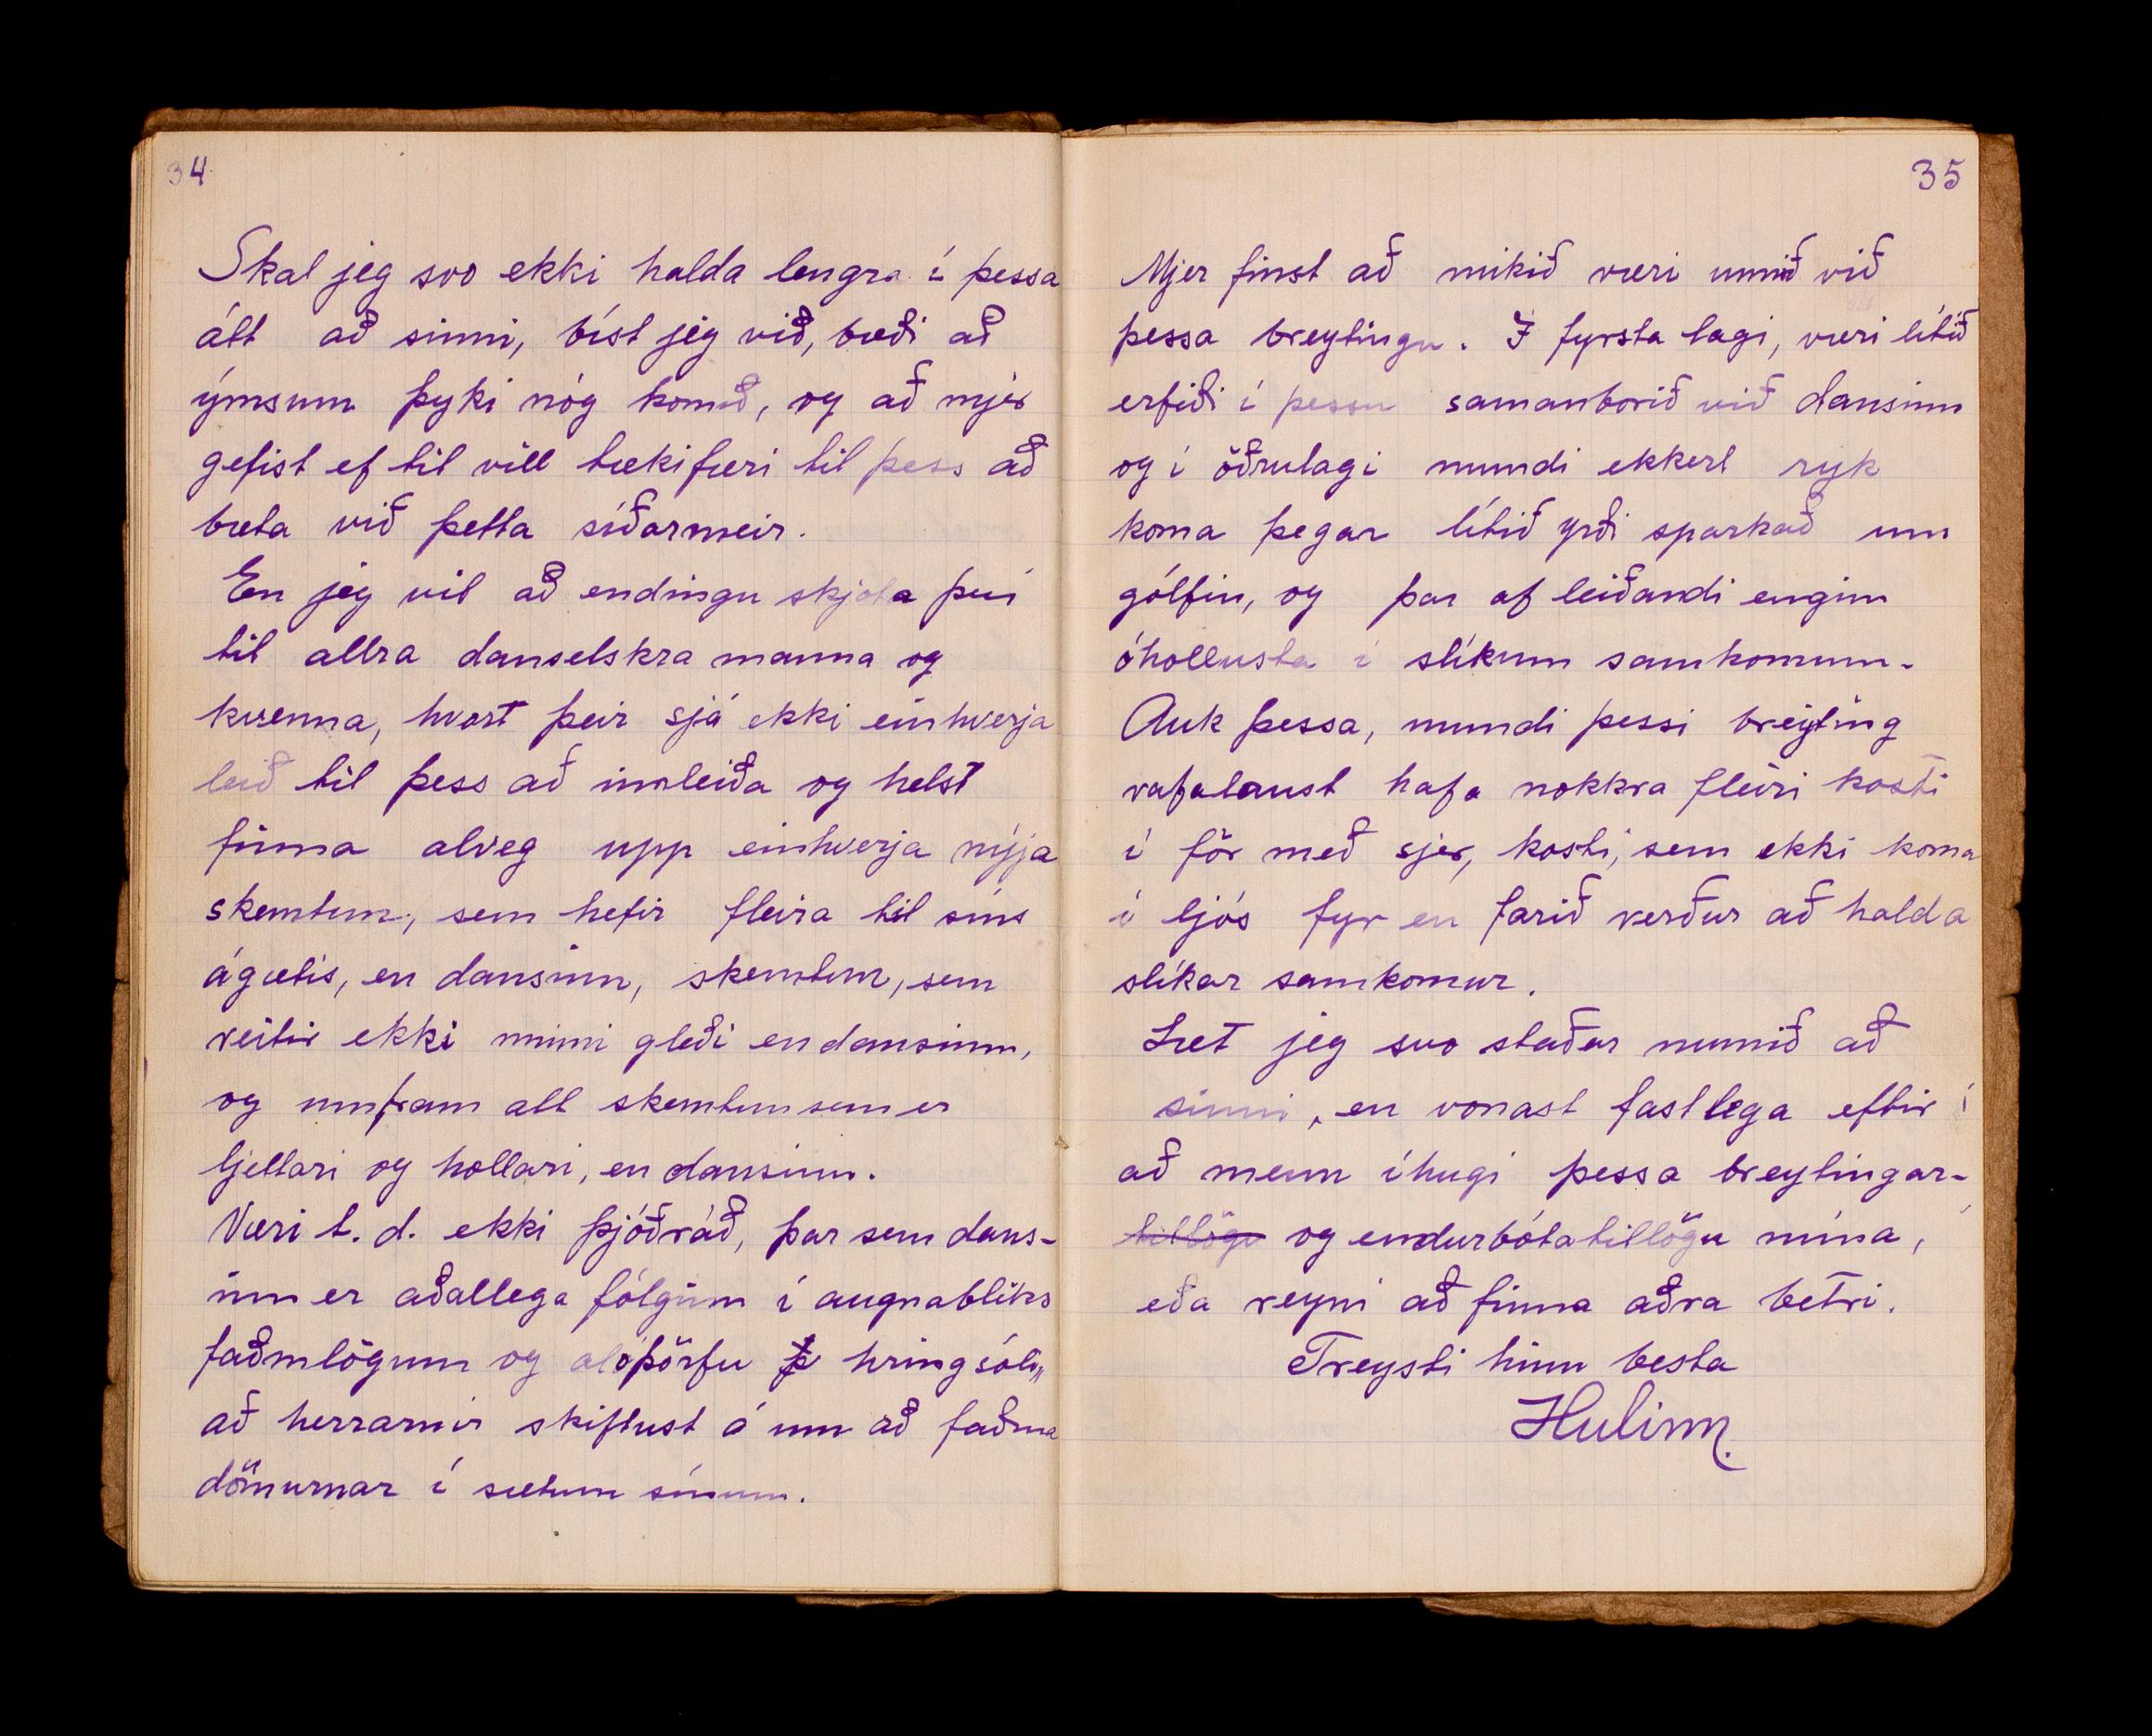 34
Skal jeg svo ekki halda lengra í þessa
átt að sinni, bíst jeg við, bæði að
ýmsum þyki nóg komið, og að mjer
gefist ef til vill tækifæri til þess að
bæta við þetta síðarmeir.
En jeg vil að endingu skjóta því
til allra danselskra manna og
kvenna, hvort þeir sjá ekki einhverja
leið til þess að innleiða og helst
finna alveg upp einhverja nýja
skemtun, sem hefir fleira til síns
ágætis, en dansinn, skemtun, sem
veitir ekki minni gleði en dansinn,
og umfram alt skemtun sem er
ljettari og hollari, en dansinn.
Væri t. d. ekki þjóðráð, þar sem dans-
inn er aðallega fólginn í augnabliks
faðmlögum og alóþörfu þ hringsóli,
að herrarnir skiftust á um að faðma
dömurnar í sætum sínum.
35
Mjer finst að mikið væri unnið við
þessa breytingu. I fyrsta lagi, væri lítið
erfiði í þessu samanborið við dansinn
og í öðrulagi mundi ekkert ryk
koma þegar lítið yrði sparkað um
gólfin, og þar af leiðandi enginn
óhollusta í slíkum samkomum.
Auk þessa, mundi þessi breyting
vafalaust hafa nokkra fleiri kosti
í för með sjer, kosti, sem ekki koma
í ljós fyr en farið verður að halda
slíkar samkomur.
Læt jeg svo staðar numið að
sinni, en vonast fastlega eftir
að menn íhugi þessa breytingar-
tillögu og endurbótatillögu mína,
eða reyni að finna aðra betri.
Treysti hinu besta
Hulinn.